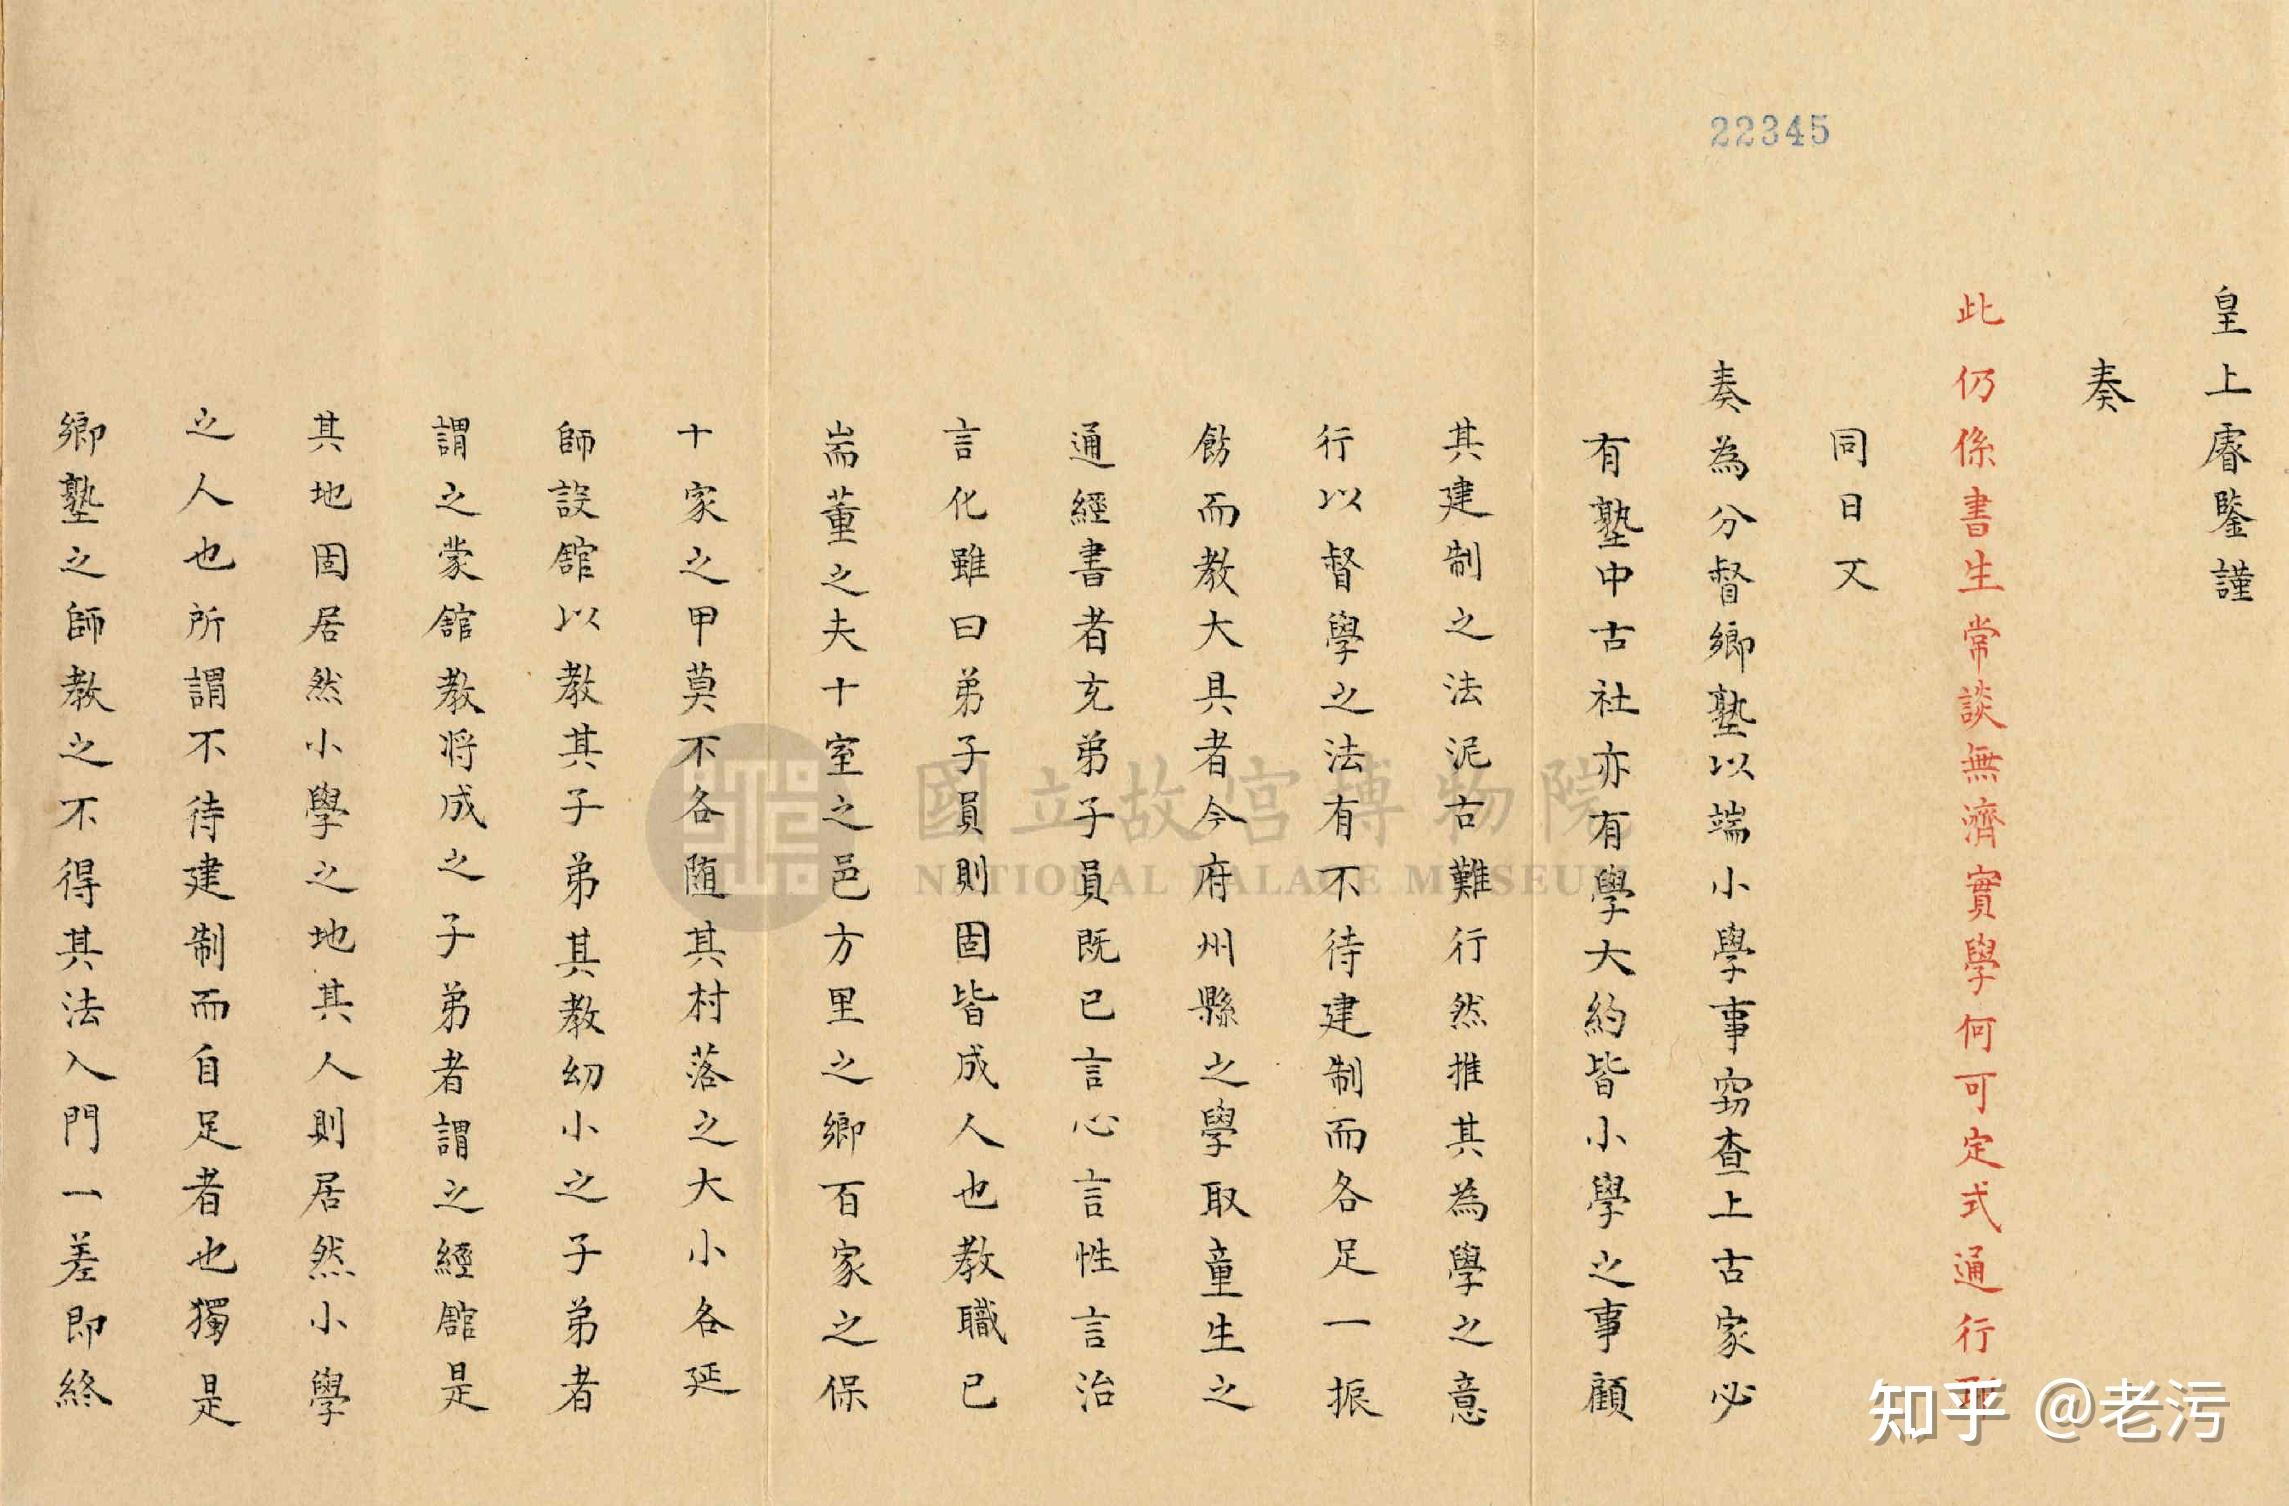 22345
皇上睿鑒謹
奏
此仍係書生常談無濟實學何可定式通行耶
同日又
奏為分督鄉塾以端小學事竊查上古家必
有塾中古社亦有學大約皆小學之事顧
其建制之法泥古難行然推其為學之意
行以督學之法有不待建制而各足一振
飭而教大具者今府州縣之學取童生之
通經書者充弟子員既已言心言性言治
言化雖曰弟子員則固皆成人也教職已
耑董之夫十室之邑方里之鄉百家之保
十家之甲莫不各随其村落之大小各延
師設舘以教其子弟其教幼小之子弟者
謂之蒙舘教将成之子弟者謂之經舘是
其地固居然小學之地其人則居然小學
之人也所謂不待建制而自足者也獨是
鄉塾之師教之不得其法入門一差即終
國立故宮博物院
NATIONAL PALACE MUSEUM
知乎 @老污